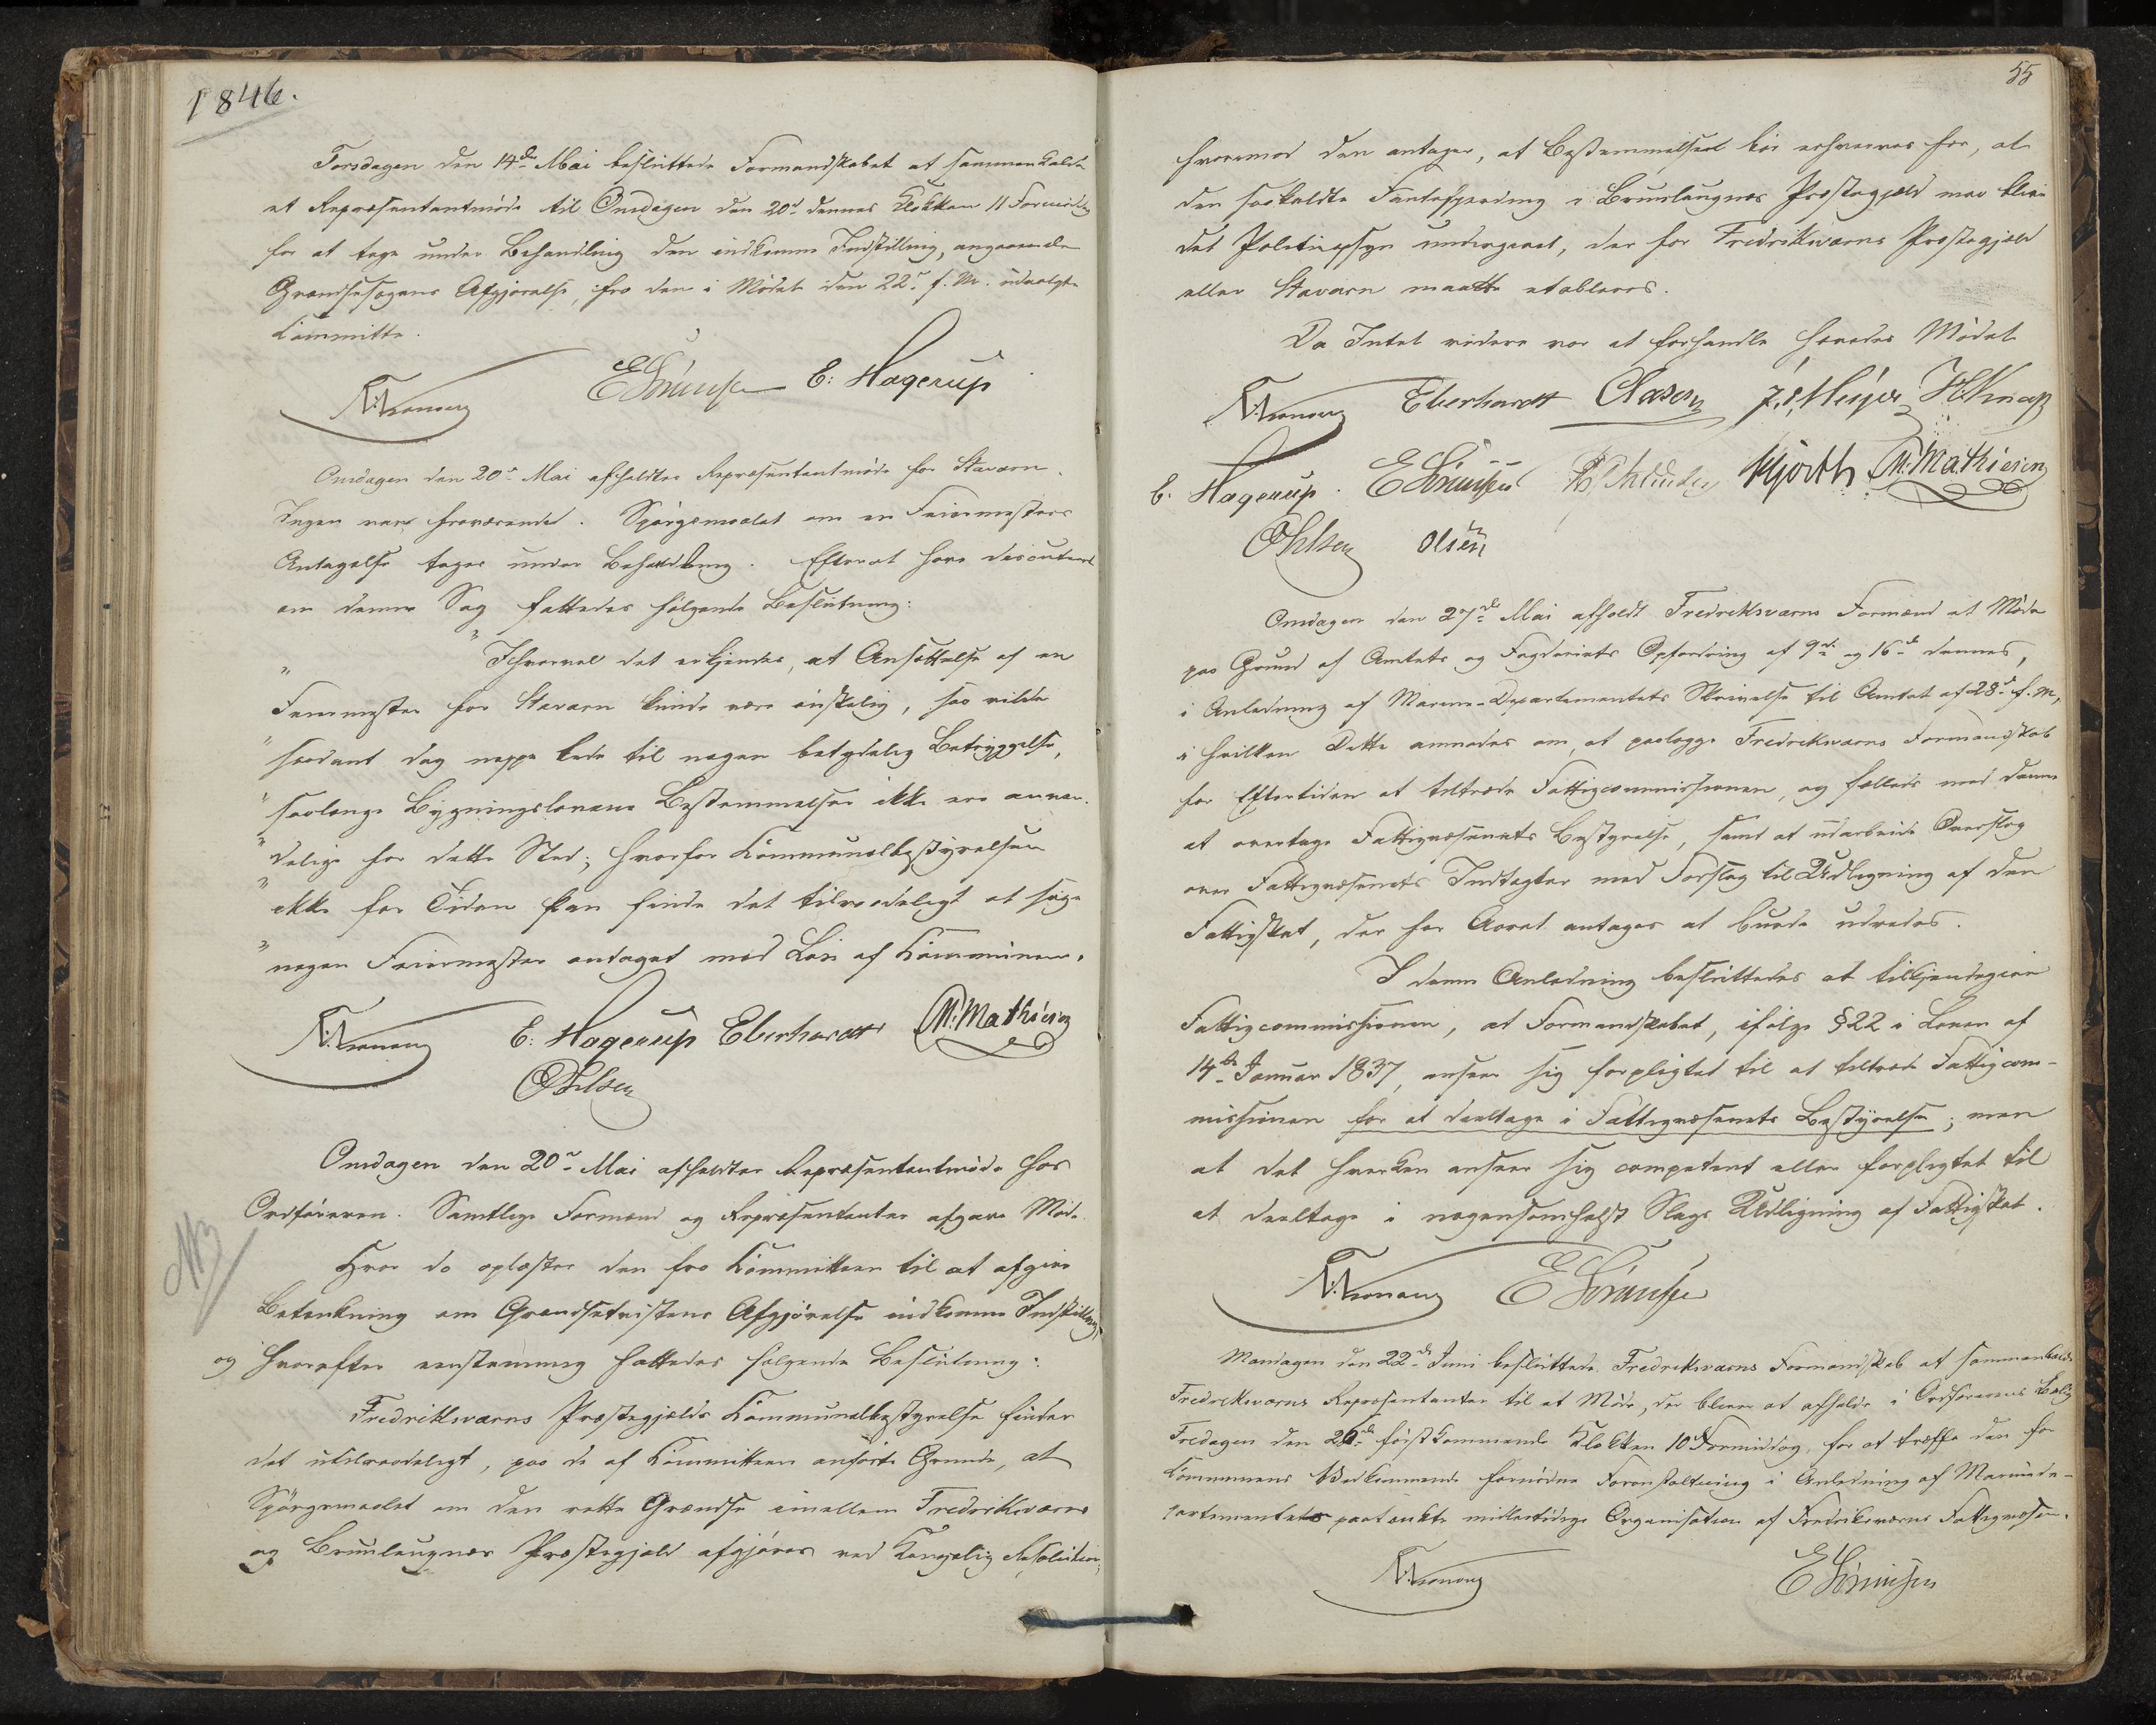 1846.
Torsdagen den 14de Mai besluttede Formandskabet at sammenkalde
et Repræsentantmöde til Onsdagen den 20de dennes Klokken 11 Formiddag
for at tage under Behandling den indkomne Indstilling, angaaende
Grændsesagens Afgjörelse, fra den i Mödet den 22de f. M. udvalgte
Committe.
E Sörensen E: Hagerup
Onsdagen den 20de Mai afholdtes Repræsentantmöde for Staværn.
Ingen var fraværende. Spörgsmaalet om en Feiermesters
Antagelse toges under Behandling. Efterat have discuteret
om denne Sag fattedes fölgende Beslutning:
" " Ihvorvel det erkjendes, at Ansættelse af en
Feiermester for Staværn kunde være önskelig, saa vilde
" saadant dog neppe lede til nogen betydelig Betryggelse,
" saalænge Bygningslovens Bestemmelser ikke ere anven-
" delige for dette Sted; hvorfor Kommunalbestyrelsen
" ikke for Tiden kan finde det tilraadeligt at söge
" nogen Feiermester antaget med Lön af Kommunen.
E: Hagerup Eberhardt M. Mathiesen
Ohlsen
Onsdagen den 20de Mai afholdtes Repræsentantmöde hos
Ordföreren. Samtlige Formænd og Repræsentanter afgave Möde.
Hvor da oplæstes den fra Kommitteen til at afgive
Betænkning om Grændsetvistens Afgjörelse indkomne Indstilling,
og hvorefter eenstemmig fattedes fölgende Beslutning:
Fredriksværns Præstegjelds Kommunalbestyrelse finder
det utilraadeligt, paa de af Kommitteen anförte Grunde, at
Spörgsmaalet om den rette Grændse imellem Fredriksværns
og Brunlaugnæs Præstegjeld afgjöres ved Kongelig Resolution;
55
hvorimod den antager, at Bestemmelsen bör erhverves for, at
den saakaldte Fantesperding i Brunlaugnæs Præstegjæld maa blive
det Politiopsyn undergivet, der for Fredriksværns Præstegjæld
eller Staværn maatte etableres.
Da Intet videre var at forhandle hævedes Mödet
Eberhardt Clasen J. S. Meyer H Knap
E. Hagerup. E Sörensen Hjorth M. Mathiesen
Ohlsen Olsen
Onsdagen den 27de Mai afholdt Fredriksværns Formænd et Möde
paa Grund af Amtets og Fogderiets Opfordring af 9de og 16de dennes,
i Anledning af Marine-Departementets Skrivelse til Amtet af 28de f. M,
i hvilken Dette anmodes om, at paalægge Fredriksværns Formandskab
for Eftertiden at tiltræde Fattigcommissionen, og fælleds med denne
at overtage Fattigvæsenets Bestyrelse, samt at udarbeide Overslag
over Fattigvæsenets Indtægter med Forslag til Udligning af den
Fattigskat, der for Aaret antages at burde udredes.
I denne Anledning besluttedes at tilkjendegive
Fattigcommissionen, at Formandskabet, ifölge § 22 i Loven af
14de Januar 1837, anseer sig forpligtet til at tiltræde Fattigcom-
missionen for at deeltage i Fattigvæsenets Bestyrelse; men
at det hverken anseer sig competent eller forpligtet til
at deeltage i nogensomhelst Slags Udligning af Fattigskat.
E Sörensen
Mandagen den 22de Juni besluttede Fredriksværns Formandskab at sammenkalde
Fredriksværns Repræsentanter til et Möde, der bliver at afholde i Ordförerens Bolig
Fredagen den 26de förstkommende Klokken 10 Formiddag, for at træffe den for
Kommunens Vedkommende fornödne Foranstaltning i Anledning af Marinede-
partementets paatænkte midlertidige Organisation af Fredriksværns Fattigvæsen.
E Sörensen